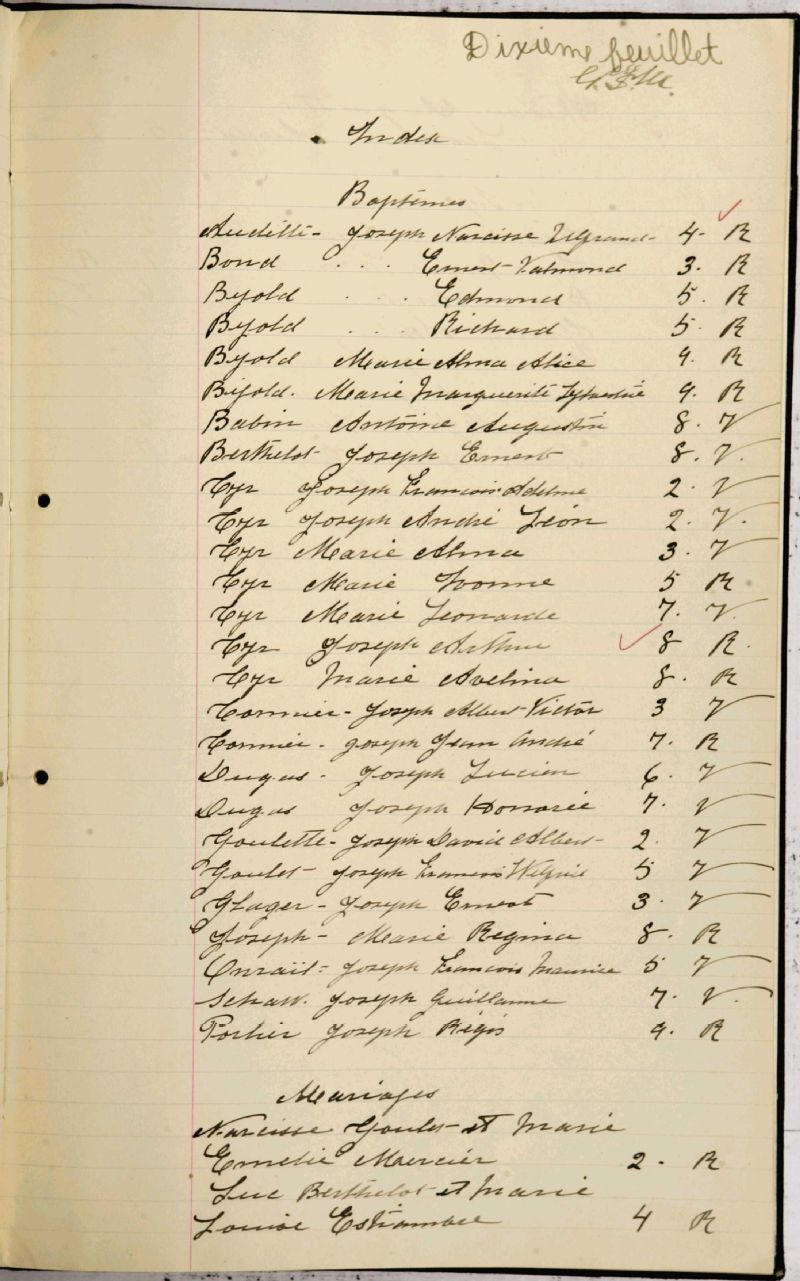 Dixième feuillet
Index
Baptêmes
Audette - Joseph Narcisse 4. R
Bond . . . Ernest Valmond 3. R
Byold . . . Edmond 5. R
Byold . . . Richard 5. R
Byold Marie Alma Alice 9. R
Byold. Marie Marguerite 9. R
Babin Antoine Augustin 8. V
Berthelot Joseph Ernest 8. V.
Cyr Joseph François Adelme 2. V
Cyr Joseph André Léon 2. V.
Cyr Marie Alma 3. V
Cyr Marie Ivonne 5 R
Cyr Marie Leonarde 7. V
Cyr Joseph Arthur 8 R.
Cyr Marie Avelina 8. R
Cormier - Joseph Albert Victor 3 V
Cormier - Joseph Jean André 7. R
Dugas - Joseph Lucien 6. V
Dugas Joseph Honorée 7. V
Goulette - Joseph David Albert - 2. V
Goulet - Joseph François Wilfrid 5 V
Glager - Joseph Ernest 3. V
Joseph - Marie Regina 8. R
Joseph François Maurice 5 V
Schaw. Joseph Guillaume 7. V.
Portier Joseph Régis 9. R
Mariages
Narcisse Goulet et Marie
Emelie Mercier 2. R
Luc Berthelot et Marie
Louise 4 R